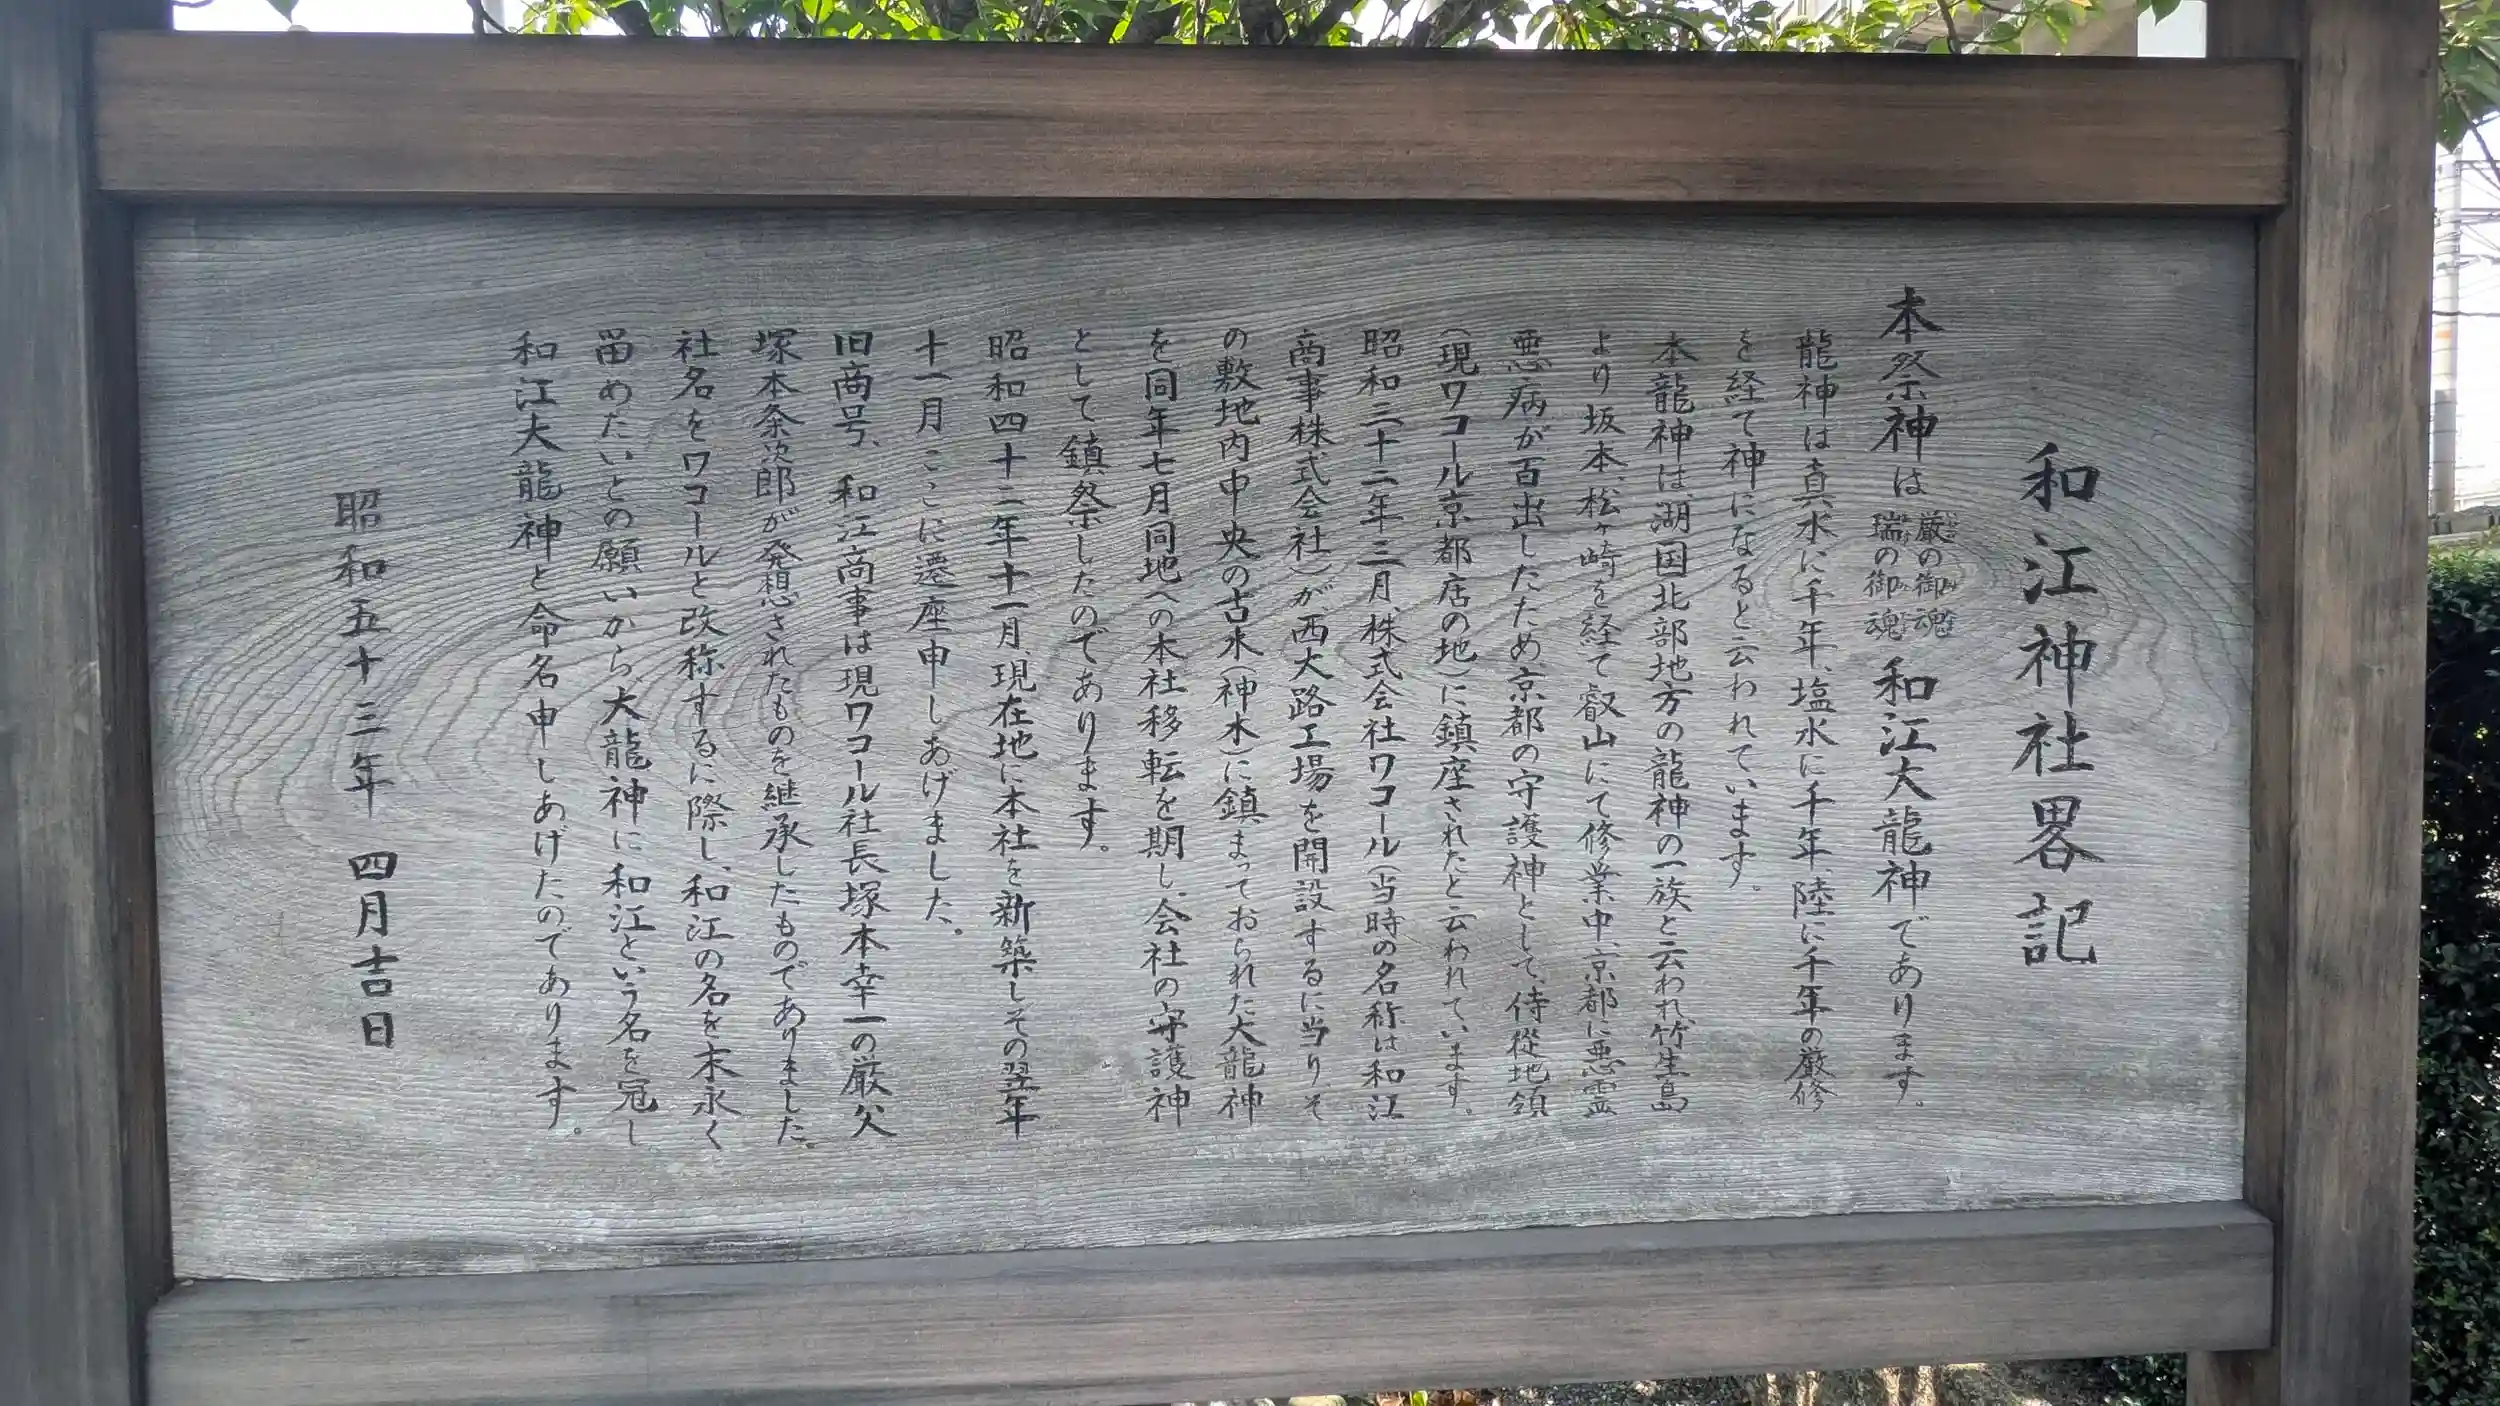 和江神社畧記
本祭神は厳の御魂瑞の御魂和江大龍神であります。
龍神は真水に千年、塩水に千年、陸に千年の厳修
を経て神になると云われています。
本龍神は、湖国北部地方の龍神の一族と云われ竹生島
より坂本、松ヶ崎を経て叡山にて修業中、京都に悪霊
悪病が百出したため、京都の守護神として、侍従地領
(現ワコール京都店の地)に鎮座されたと云われています。
昭和三十二年三月、株式会社ワコール(当時の名称は和江
商事株式会社)が、西大路工場を開設するに当り、そ
の敷地内中央の古水(神水)に鎮まっておられた大龍神
を同年七月同地への本社移転を期し、会社の守護神
として鎮祭したのであります。
昭和四十二年十一月、現在地に本社を新築しその翌年
十一月ここに遷座申しあげました。
旧商号、和江商事は現ワコール社長塚本幸一の厳父
塚本粂次郎が発想されたものを継承したものでありました。
社名をワコールと改称するに際し、和江の名を末永く
留めたいとの願いから、大龍神に和江という名を冠し
和江大龍神と命名申しあげたのであります。
昭和五十三年四月吉日